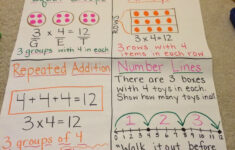 3 x 4 = 12
G E T
3 groups with 4 in each
ROWS
3 x 4 = 12
3 rows with 4
items in each row
Repeated Addition
4+4+4=12
3 x 4 = 12
3 groups of 4
Number Lines
There are 3 boxes
with 4 toys in each.
Show how many toys in all.
1 2 3
0 1 2 3 4 5 6 7 8 9 10 11 12
"Walk it out before